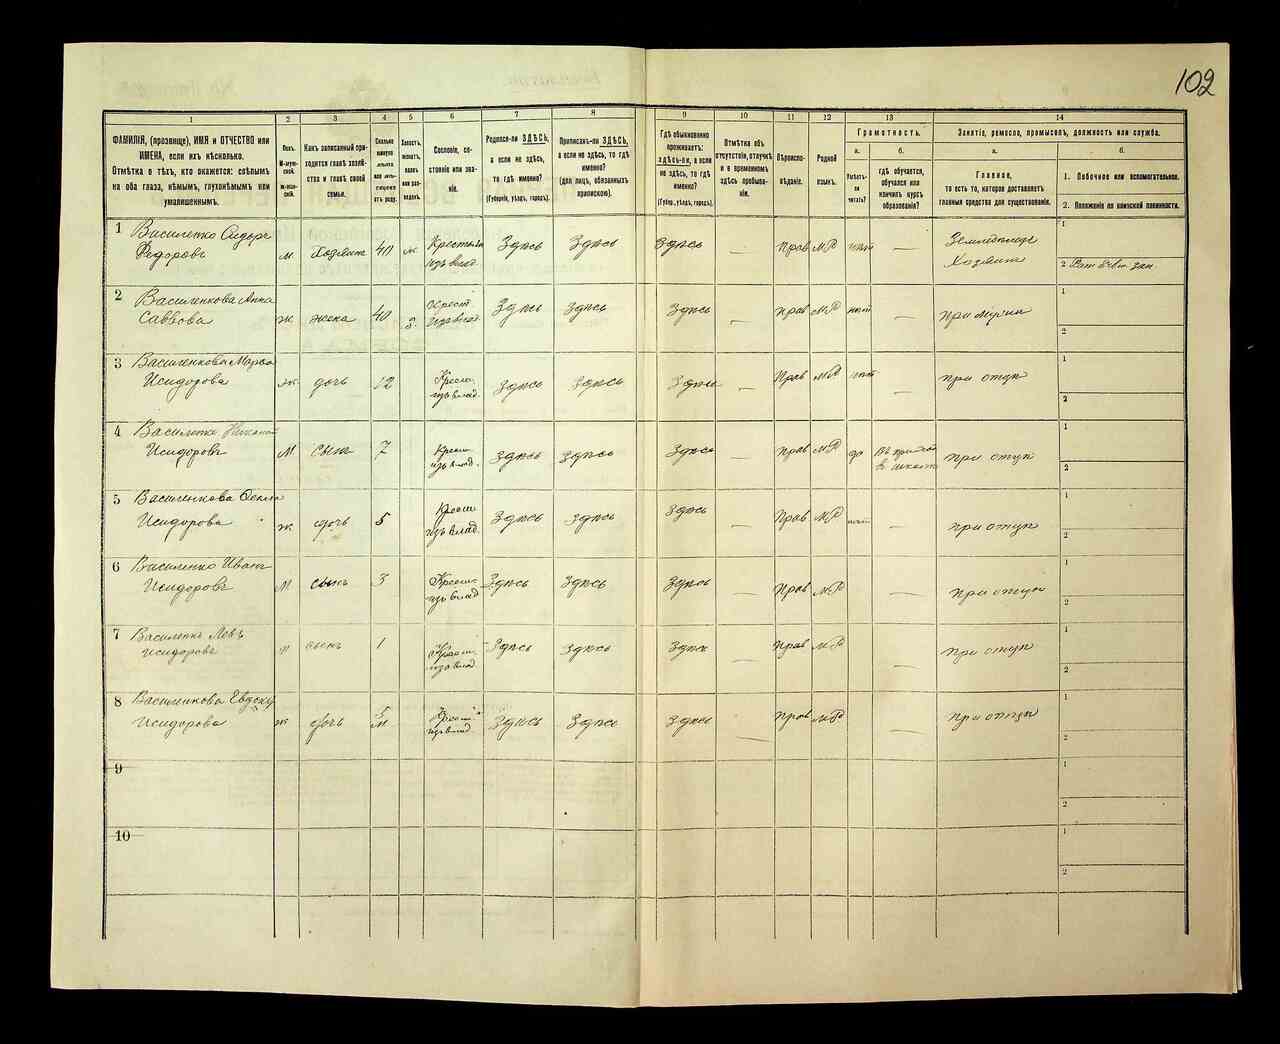 102
1 2 3 4 5 6 7 8 9 10 11 12 13 14
ФАМИЛІЯ, (прозвище), ИМЯ и ОТЧЕСТВО или
ИМЕНА, если ихъ нѣсколько.
Отмѣтка о тѣхъ, кто окажется: слѣпымъ
на оба глаза, нѣмымъ, глухонѣмымъ или
умалишеннымъ.
Полъ.
М-муж-
ской.
Ж-жен-
скій.
Какъ записанный при-
ходится главѣ хозяй-
ства и главѣ своей
семьи.
Сколько
минуло
лѣтъ
или мѣ-
сяцевъ
отъ роду.
Холостъ,
женатъ,
вдовъ
или раз-
веденъ.
Сословіе, со-
стояніе или зва-
ніе.
Родился-ли ЗДѢСЬ,
а если не здѣсь,
то гдѣ именно?
(Губернія, уѣздъ, городъ).
Приписанъ-ли ЗДѢСЬ,
а если не здѣсь, то гдѣ
именно?
(для лицъ, обязанныхъ
припискою).
Гдѣ обыкновенно
проживаетъ:
здѣсь-ли, а если
не здѣсь, то гдѣ
именно?
(Губер., уѣздъ, городъ).
Отмѣтка объ
отсутствіи, отлучкѣ
и о временномъ
здѣсь пребыва-
ніи.
Вѣроиспо-
вѣданіе.
Родной
языкъ.
Грамотность.
а.
Умѣетъ-
ли
читать?
б.
гдѣ обучается,
обучался или
кончилъ курсъ
образованія?
Занятіе, ремесло, промыселъ, должность или служба.
а.
Главное,
то есть то, которое доставляетъ
главныя средства для существованія.
б.
1. Побочное или вспомогательное.
2. Положеніе по воинской повинности.
1 Василенко Сидоръ
Федоровъ м Хозяинъ 40 ж Крестьян
изъ влад. Здѣсь Здѣсь Здѣсь — Прав МР нѣт — Земледѣлец
Хозяин 1
2
2 Василенкова Анна
Саввова ж жена 40 З. Крест.
изъ влад. Здѣсь Здѣсь Здѣсь — прав МР нѣт — при мужи 1
2
3 Василенкова Марфа
Исидорова ж дочь 12 Крест.
изъ влад. Здѣсь Здѣсь Здѣсь — Прав МР нѣт — при отцѣ 1
2
4 Василенко
Исидоровъ М сынъ 7 Крест.
изъ влад. Здѣсь Здѣсь Здѣсь — прав МР да при отцѣ 1
2
5 Василенкова
Исидорова ж дочь 5 Крест.
изъ влад. Здѣсь Здѣсь Здѣсь — Прав МР нѣт — при отцѣ 1
2
6 Василенко Иванъ
Исидоровъ М сынъ 3 Крест.
изъ влад. Здѣсь Здѣсь Здѣсь — прав МР — при отцѣ 1
2
7 Василенко Левъ
Исидоровъ м сынъ 1 Крест.
изъ влад Здѣсь Здѣсь Здѣсь — прав МР — при отцѣ 1
2
8 Василенкова
Исидорова ж дочь 5
м Крест.
изъ влад. Здѣсь Здѣсь Здѣсь — прав МР — при отцѣ 1
2
9 1
2
10 1
2